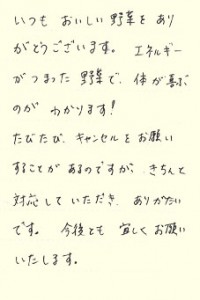 いつも おいしい 野菜を あり
がとうございます。 エネルギー
がつまった 野菜で、体が喜ぶ
のが わかります!
たびたび、キャンセルをお願い
することが あるのですが、きちんと
対応して いただき、ありがたい
です。 今後とも 宜しくお願い
いたします。